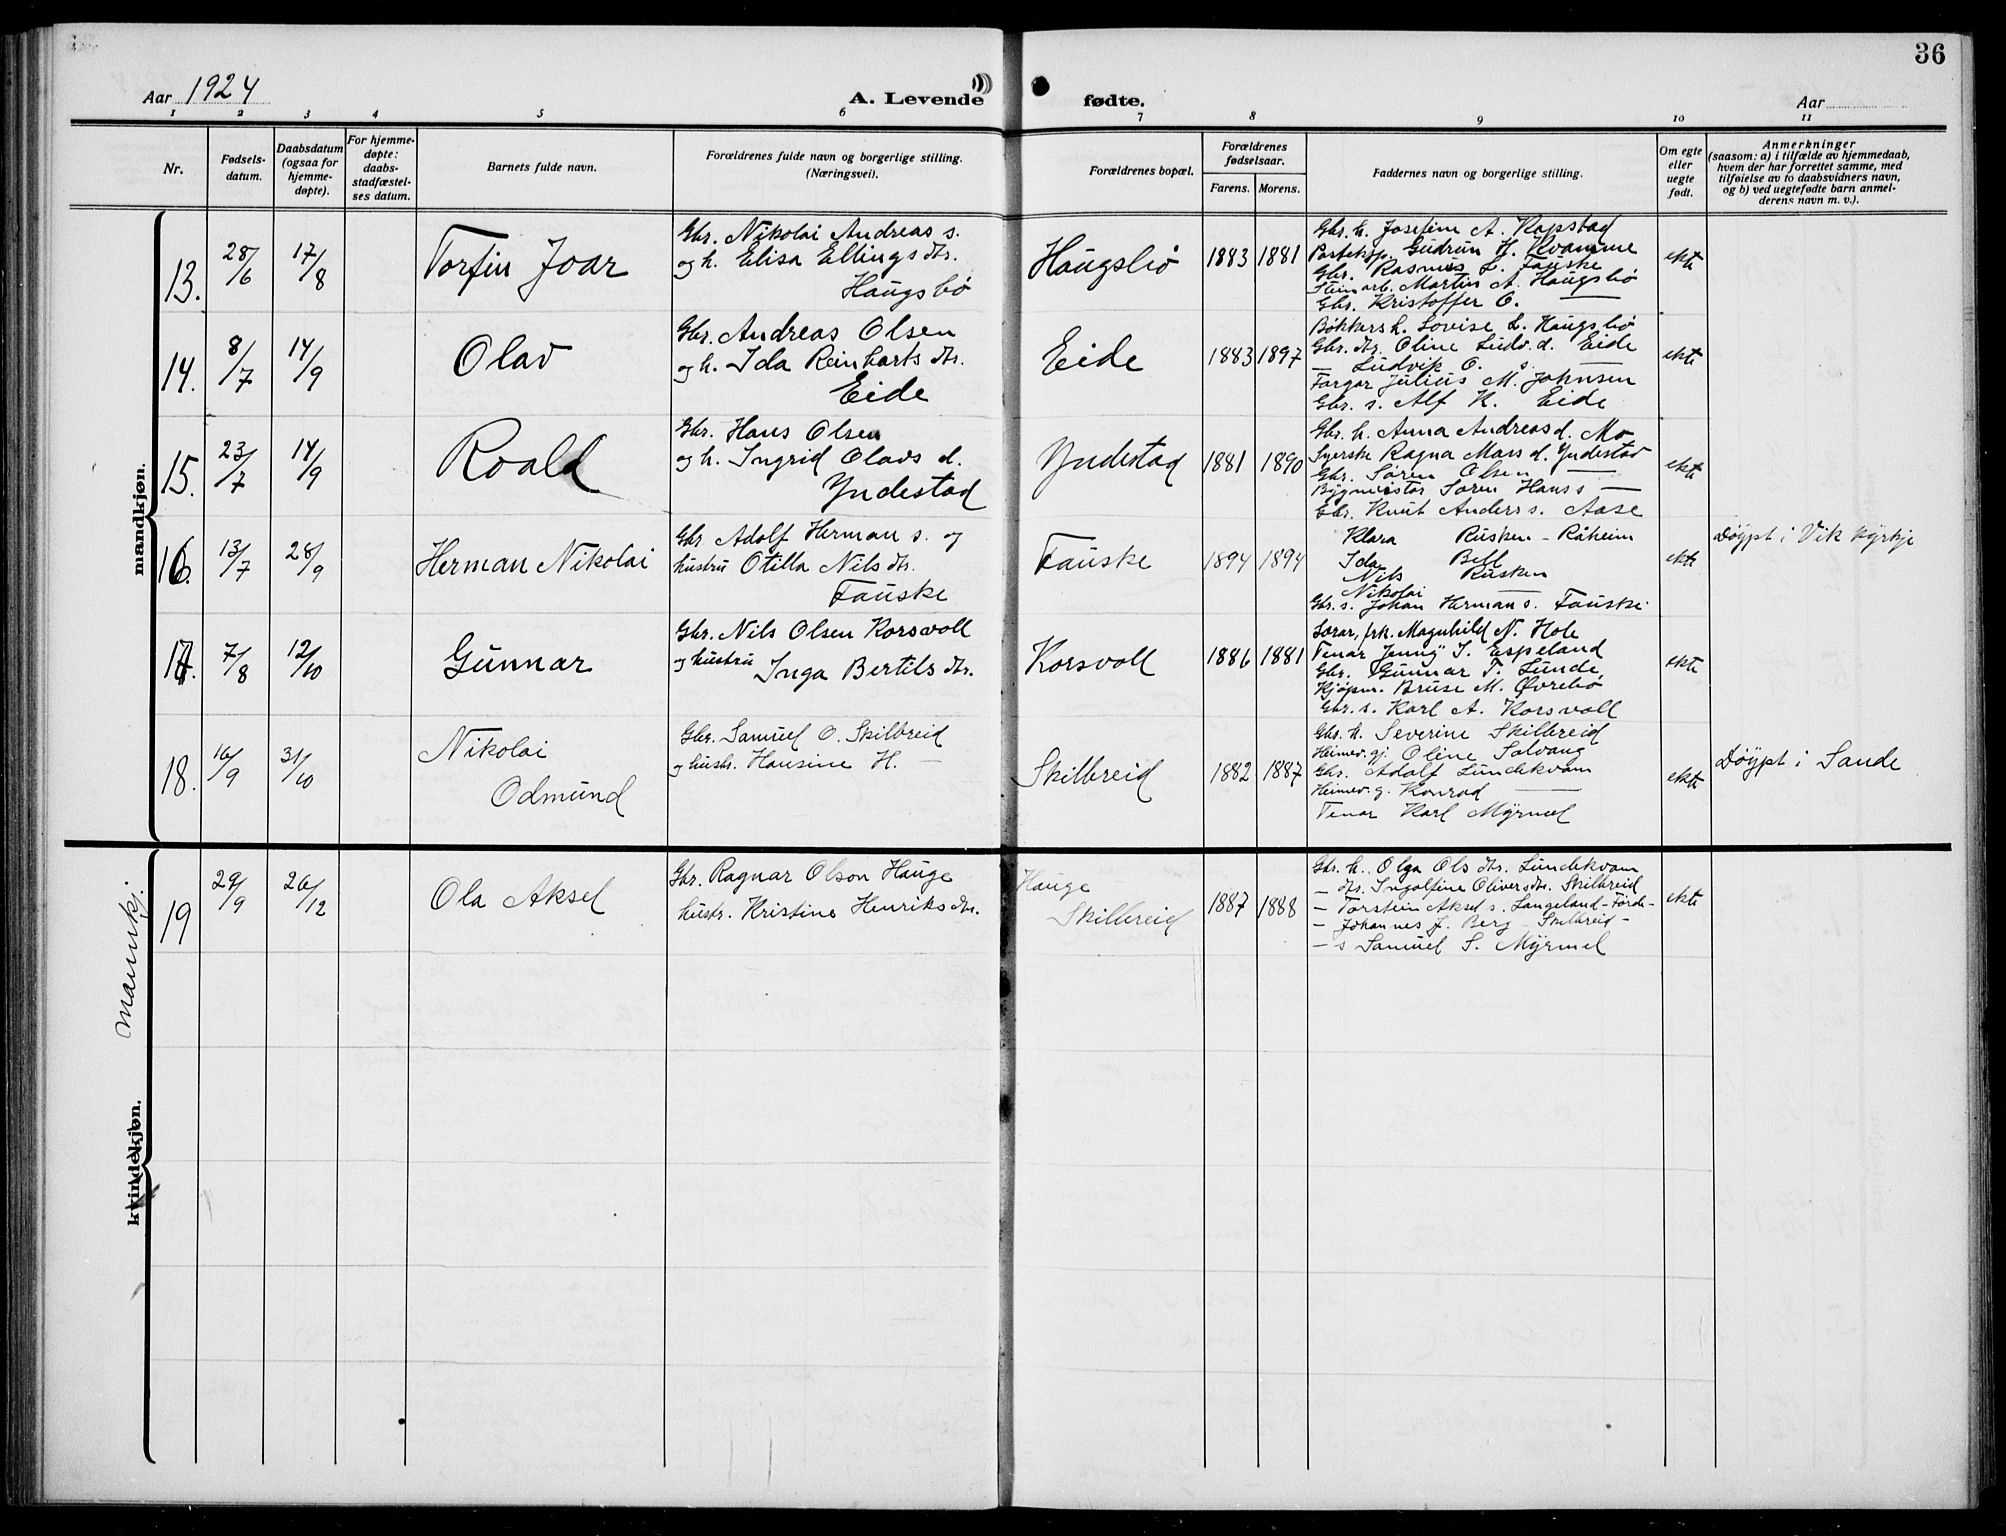 36
Aar 1924
A. Levende fødte.
Aar
1 2 3 4 5 6 7 8 9 10 11
Nr.
Fødsels-
datum.
Daabsdatum
(ogsaa for
hjemme-
døpte).
For hjemme-
døpte:
daabs-
stadfæstel-
ses datum.
Barnets fulde navn.
Forældrenes fulde navn og borgerlige stilling.
(Næringsvei).
Forældrenes bopæl.
Forældrenes
fødselsaar.
Farens. Morens.
Faddernes navn og borgerlige stilling.
Om egte
eller
uegte
født.
Anmerkninger
(saasom: a) i tilfælde av hjemmedaab,
hvem der har forrettet samme, med
tilføielse av to daabsvidners navn,
og b) ved uegtefødte barn anmel-
derens navn m. v.).
mandkjøn.
13.
28/6
17/8
Torfin Joar
Gbr. Nikolai Andreas s.
og h. Elisa Ellings dtr.
Haugsbø
Haugsbø
1883 1881
Gbr. h. Josefine A. Kopstad
Gudrun H. Kvamme
Gbr. Rasmus L. Fauske
Steinarb. Martin A. Haugsbø
Gbr. Kristoffer O. —
ekte
14.
8/7
14/9
Olav
Gbr. Andreas Olsen
og h. Ida Reinharts dtr.
Eide
Eide
1883 1897
Bøkkers h. Lovise L. Haugsbø
Gbr. dtr. Oline Ludv. d. Eide
— Ludvik O. s. —
Fargar Julius M. Johnsen
Gbr. s. Alf K. Eide
ekte
15.
23/7
14/9
Roald
Gbr. Hans Olsen
og h. Ingrid Olavs d.
Yndestad
Yndestad
1881 1890
Gbr. h. Anna Andreas d. Mo
Syerske Ragna Mars d. Yndestad
Gbr. Søren Olsen —
Bygmeistar Søren Hans s —
Gbr. Knut Anders s. Aase
ekte
16.
13/7
28/9
Herman Nikolai
Gbr Adolf Herman s. og
hustru Otilla Nils dtr.
Fauske
Fauske
1894 1894
Klara Rusken - Råheim
Ida Bell
Nils Rusken
Nikolai —
Gbr. s. Johan Herman s. Fauske.
ekte
Døypt i Vik kyrkje
17.
7/8
12/10
Gunnar
Gbr. Nils Olsen Korsvoll
og hustru Inga Bertils dtr.
Korsvoll
1886 1881
Lærar, frk. Magnhild N. Hole
Tenar Jenny S. Espeland
Gbr. Gunnar T. Lunde,
Kjøpm. Bruse M. Øvrebø
Gbr. s. Karl A. Korsvoll
ekte
18.
16/9
31/10
Nikolai
Odmund
Gbr. Samuel O. Skilbreid
og hustr. Hansine H. —
Skilbreid
1882 1887
Gbr. h. Severine Skilbreid
Heimev. gj. Oline Solvang
Gbr. Adolf Lundekvam
Heimev. g. Konrad —
Tenar Karl Myrmel
ekte
Døypt i Sande
mannkj.
kvindekjøn.
19
29/9
26/12
Ola Aksel
Gbr. Ragnar Olson Hauge
hustr. Kristine Henriks dtr.
Hauge
Skilbreid
1887 1888
Gbr. h. Olga Ols dtr. Lundekvam
— dtr. Ingolfine Olivers dtr. Skilbreid
— Torstein Aksel s. Langeland - Førde -
— Johannes J. Berg - Skilbreid -
— s Samuel S. Myrmel
ekte